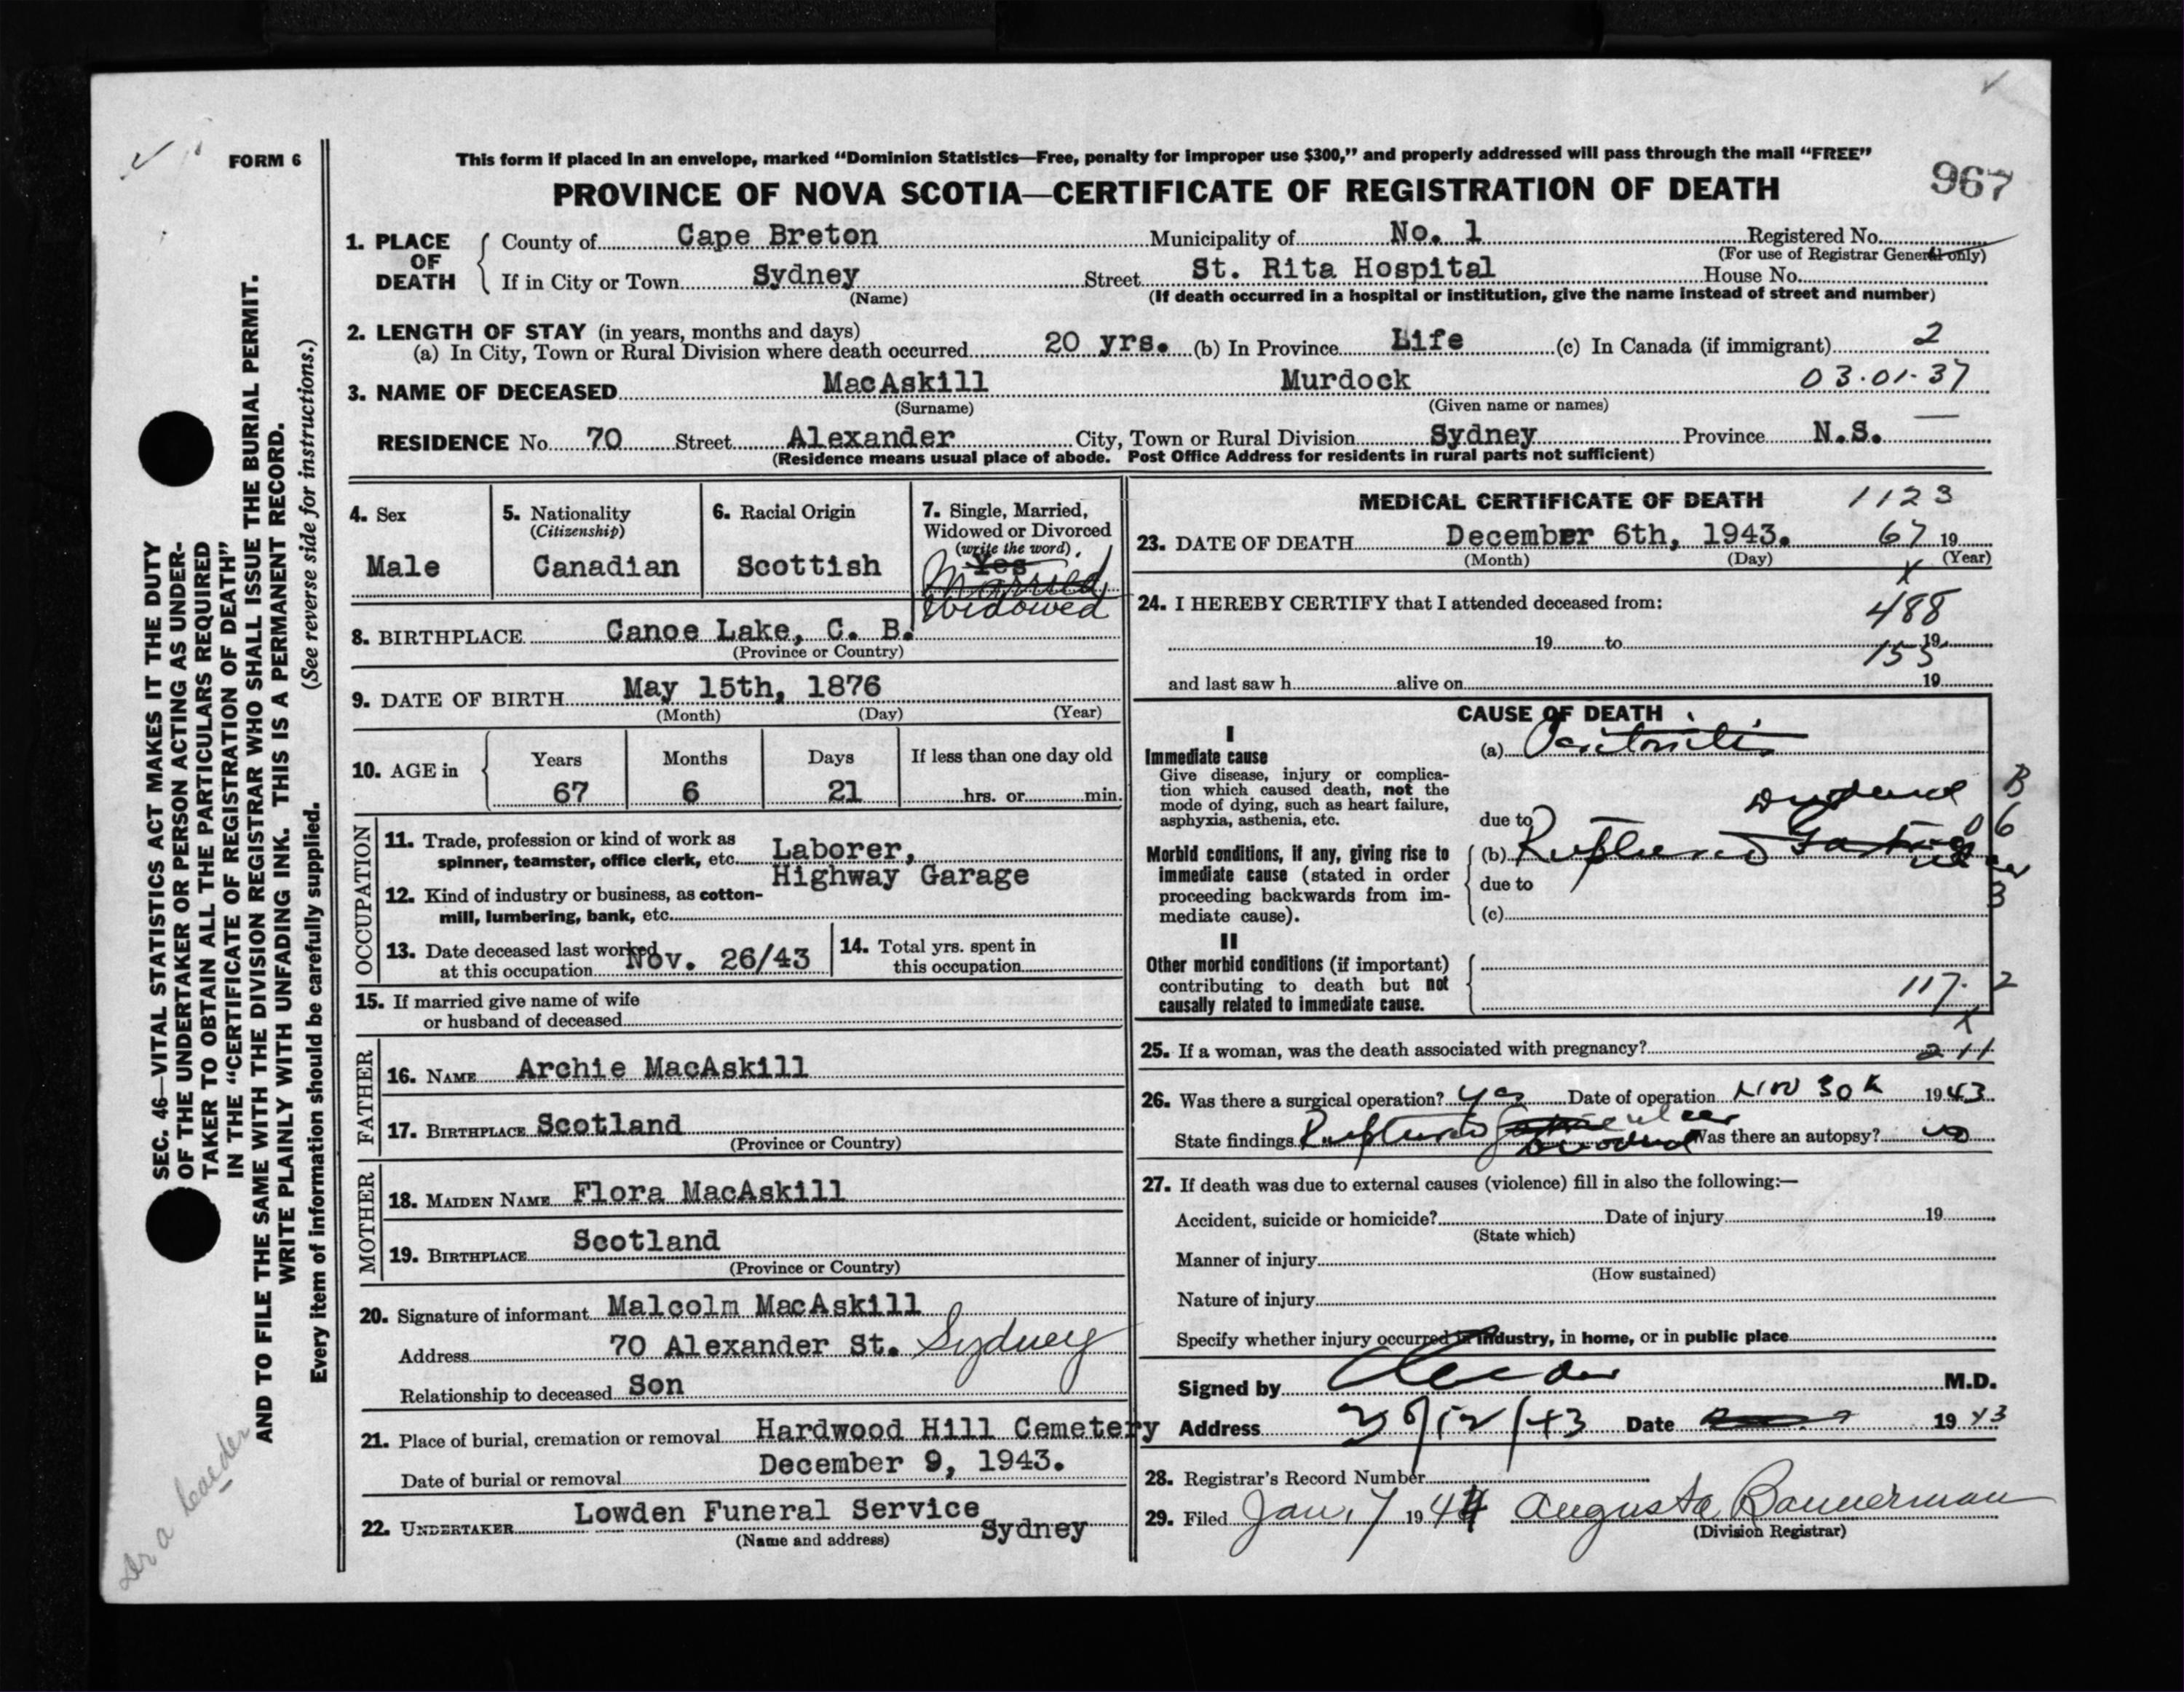 FORM 6
This form if placed in an envelope, marked “Dominion Statistics—Free, penalty for improper use $300,” and properly addressed will pass through the mail “FREE”
PROVINCE OF NOVA SCOTIA—CERTIFICATE OF REGISTRATION OF DEATH
967
1. PLACE OF DEATH
County of Cape Breton Municipality of No. 1 Registered No.
(For use of Registrar General only)
If in City or Town Sydney Street St. Rita Hospital House No.
(Name) (If death occurred in a hospital or institution, give the name instead of street and number)
2. LENGTH OF STAY (in years, months and days)
(a) In City, Town or Rural Division where death occurred 20 yrs. (b) In Province Life (c) In Canada (if immigrant) 2
3. NAME OF DECEASED MacAskill Murdock 03·01·37
(Surname) (Given name or names)
RESIDENCE No. 70 Street Alexander City, Town or Rural Division Sydney Province N.S.
(Residence means usual place of abode. Post Office Address for residents in rural parts not sufficient)
4. Sex
Male
5. Nationality
(Citizenship)
Canadian
6. Racial Origin
Scottish
7. Single, Married,
Widowed or Divorced
(write the word)
Yes
Married
Widowed
8. BIRTHPLACE Canoe Lake, C. B.
(Province or Country)
9. DATE OF BIRTH May 15th, 1876
(Month) (Day) (Year)
10. AGE in
Years Months Days If less than one day old
67 6 21 hrs. or min.
OCCUPATION
11. Trade, profession or kind of work as
spinner, teamster, office clerk, etc. Laborer,
Highway Garage
12. Kind of industry or business, as cotton-
mill, lumbering, bank, etc.
13. Date deceased last worked
at this occupation Nov. 26/43
14. Total yrs. spent in
this occupation
15. If married give name of wife
or husband of deceased
FATHER
16. NAME Archie MacAskill
17. BIRTHPLACE Scotland
(Province or Country)
MOTHER
18. MAIDEN NAME Flora MacAskill
19. BIRTHPLACE Scotland
(Province or Country)
20. Signature of informant Malcolm MacAskill
Address 70 Alexander St. Sydney
Relationship to deceased Son
21. Place of burial, cremation or removal Hardwood Hill Cemetery
Date of burial or removal December 9, 1943.
22. UNDERTAKER Lowden Funeral Service
Sydney
(Name and address)
MEDICAL CERTIFICATE OF DEATH 1123
23. DATE OF DEATH December 6th, 1943. 67 19
(Month) (Day) (Year)
24. I HEREBY CERTIFY that I attended deceased from:
488
19 to 19
155
and last saw h alive on 19
CAUSE OF DEATH
I
Immediate cause
Give disease, injury or complica-
tion which caused death, not the
mode of dying, such as heart failure,
asphyxia, asthenia, etc.
(a) Peritonitis
Duodenal
B
6
due to
Morbid conditions, if any, giving rise to
immediate cause (stated in order
proceeding backwards from im-
mediate cause).
(b) Ruptured Gastric ulcer
due to
3
(c)
II
Other morbid conditions (if important)
contributing to death but not
causally related to immediate cause.
117· 2
25. If a woman, was the death associated with pregnancy?
211
26. Was there a surgical operation? yes Date of operation Nov 30th 1943
State findings Ruptured Gastric ulcer Duodenal Was there an autopsy? no
27. If death was due to external causes (violence) fill in also the following:—
Accident, suicide or homicide? Date of injury 19
(State which)
Manner of injury
(How sustained)
Nature of injury
Specify whether injury occurred in industry, in home, or in public place
Signed by M.D.
Address /12/43 Date 1943
28. Registrar's Record Number
29. Filed Jan. 7 1944 Augusta Bannerman
(Division Registrar)
SEC. 46—VITAL STATISTICS ACT MAKES IT THE DUTY
OF THE UNDERTAKER OR PERSON ACTING AS UNDER-
TAKER TO OBTAIN ALL THE PARTICULARS REQUIRED
IN THE “CERTIFICATE OF REGISTRATION OF DEATH”
AND TO FILE THE SAME WITH THE DIVISION REGISTRAR WHO SHALL ISSUE THE BURIAL PERMIT.
WRITE PLAINLY WITH UNFADING INK. THIS IS A PERMANENT RECORD.
Every item of information should be carefully supplied. (See reverse side for instructions.)